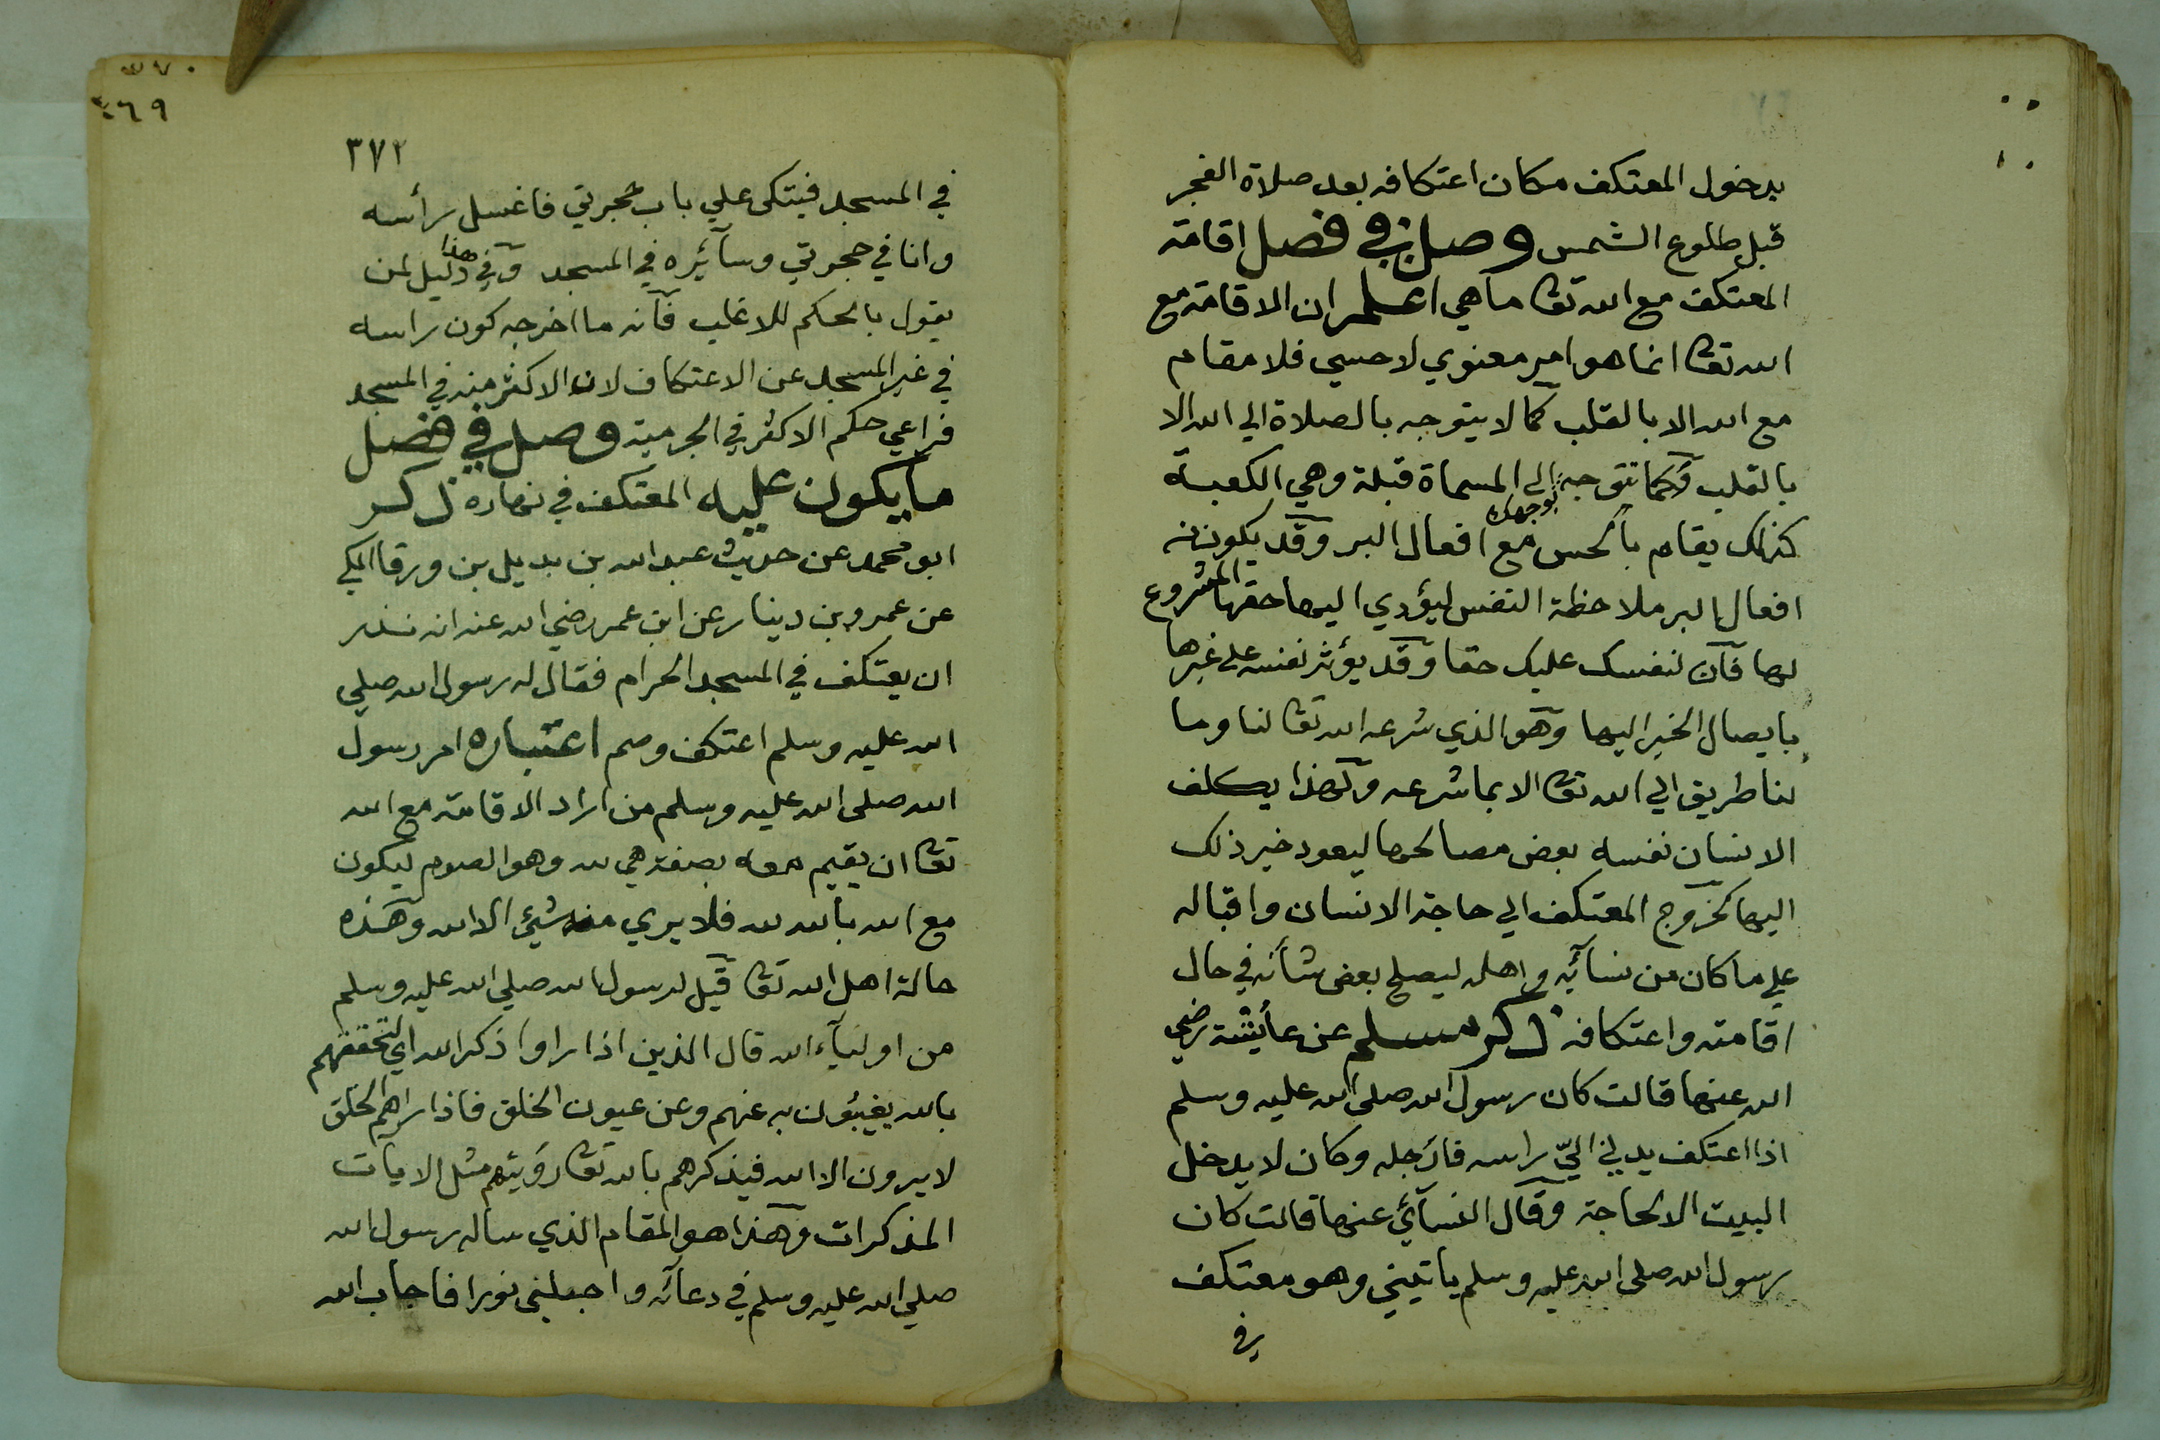 يدخول المعتكف مكان اعتكافه بعد صلاة الفجر
قبل طلوع الشمس وصل في فصل اقامة
المعتكف مع الله تعا ما هي اعلم ان الاقامة مع
الله تعا انما هو امر معنوي لا حسي فلا مقام
مع الله الا بالقلب كما لا يتوجه بالصلاة الي الله الا
بالقلب وكما تتوجه بوجهك الي المسماة قبلة وهي الكعبة
كذلك يقام بالحس مع افعال البر وقد يكون من
افعال البر ملاحظة النفس ليؤدي اليها حقها المشروع
لها فان لنفسك عليك حقا وقد يؤثر نفسه علي غيرها
بايصال الخير اليها وهو الذي شرعه الله تعا لنا وما
لنا طريق الي الله تعا الا بما شرعه ولهذا يكلف
الانسان نفسه بعض مصالحها ليعود خير ذلك
اليها كخروج المعتكف الي حاجة الانسان واقباله
علي ما كان من نسآئه واهله ليصلح بعض شأنه في حال
اقامته واعتكافه ذكر مسلم عن عائشة رضي
الله عنها قالت كان رسول الله صلي الله عليه وسلم
اذا اعتكف يدني اليّ راسه فارجله وكان لا يدخل
البيت الا لحاجة وقال النسآئي عنها قالت كان
رسول الله صلي الله عليه وسلم ياتيني وهو معتكف
في
٣٧٠
٤٦٩
٣٧٢
في المسجد فيتكى علي باب حجرتي فاغسل رأسه
وانا في حجرتي وسآئره في المسجد وفي هذا دليل لمن
يقول بالحكم للاغلب فانه ما اخرجه كون راسه
في غير المسجد عن الاعتكاف لان الاكثر منه في المسجد
فراعي حكم الاكثر في الجرمية وصل في فصل
ما يكون عليه المعتكف في نهاره ذكر
ابو محمد عن حديث عبد الله بن بديل بن ورقا المكي
عن عمرو بن دينار عن ابن عمر رضي الله عنه انه نذر
ان يعتكف في المسجد الحرام فقال له رسول الله صلي
الله عليه وسلم اعتكف وصم اعتباره امر رسول
الله صلي الله عليه وسلم من اراد الاقامة مع الله
تعا ان يقيم معه بصفة هي لله وهو الصوم ليكون
مع الله بالله لله فلا يري منه شيئ الا الله وهذه
حالة اهل الله تعا قيل لرسول الله صلي الله عليه وسلم
من اوليآء الله قال الذين اذا راوا ذكر الله اي لتحققهم
بالله يغيبون به عنهم وعن عيون الخلق فاذا راهم الخلق
لا يرون الا الله فيذكرهم بالله تعا رؤيتهم مثل الايات
المذكرات وهذا هو المقام الذي ساله رسول الله
صلي الله عليه وسلم في دعآئه واجعلني نورا فاجاب الله